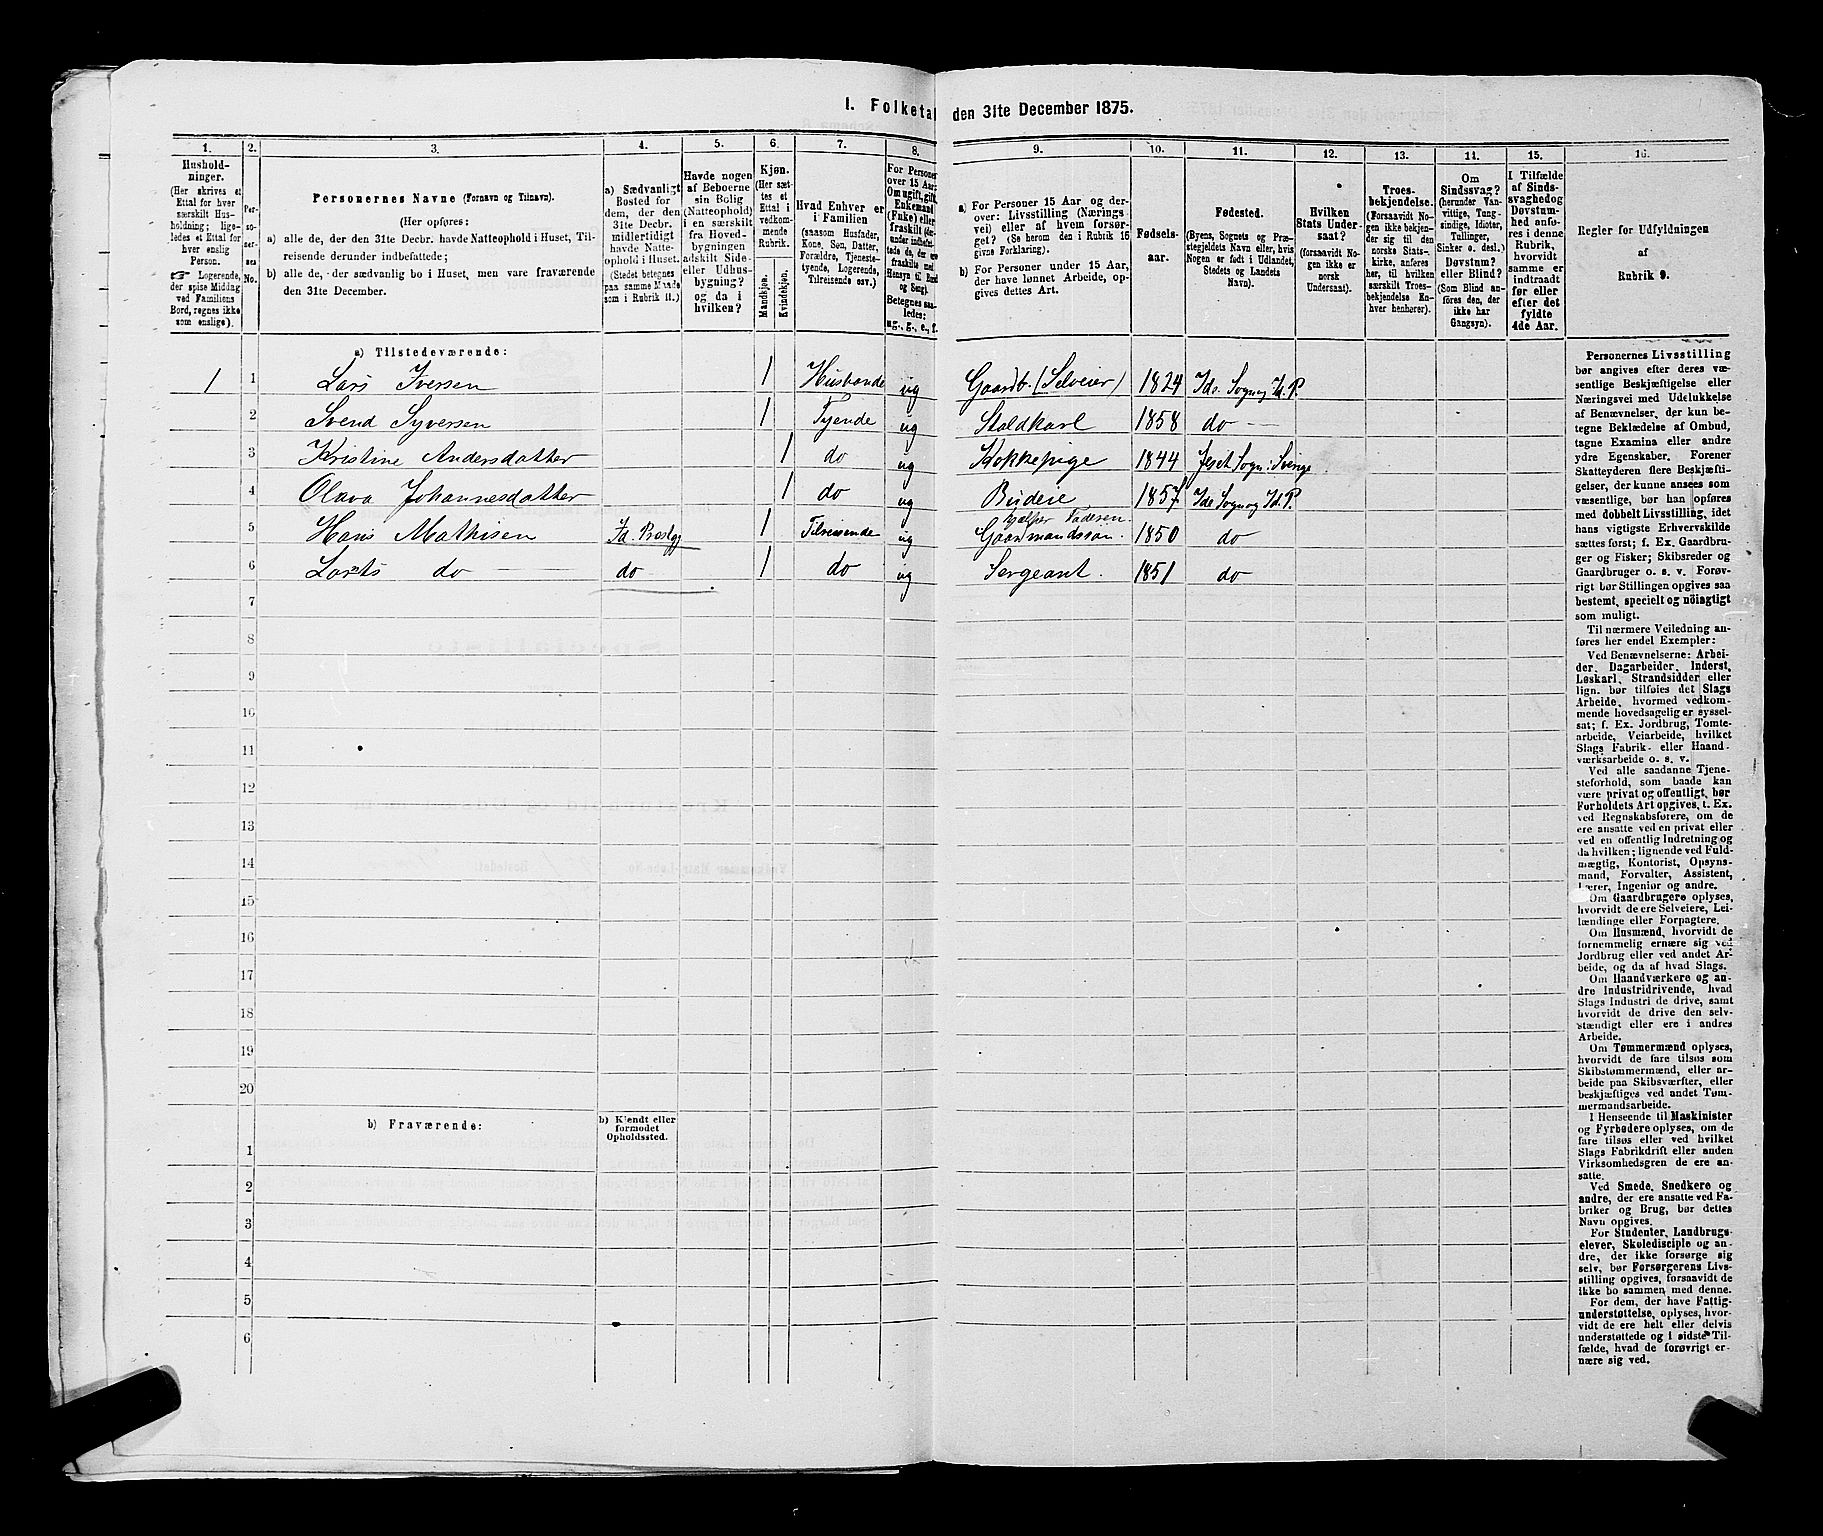 I. Folketal den 31te December 1875.
1. 2. 3. 4. 5. 6. 7. 8. 9. 10. 11. 12. 13. 14. 15. 16.
Hushold-
ninger.
(Her skrives et
Ettal for hver
særskilt Hus-
holdning; lige-
ledes et Ettal for
hver enslig
Person.
☞ Logerende,
der spise Middag
ved Familiens
Bord, regnes ikke
som enslige).
Per-
so-
ner-
nes
No.
Personernes Navne (Fornavn og Tilnavn).
(Her opføres:
a) alle de, der den 31te Decbr. havde Natteophold i Huset, Til-
reisende derunder indbefattede;
b) alle de, der sædvanlig bo i Huset, men vare fraværende
den 31te December.
a) Sædvanligt
Bosted for
dem, der den
31te Decbr.
midlertidigt
havde Natte-
ophold i Huset.
(Stedet betegnes
paa samme Maade
som i Rubrik 11.)
Havde nogen
af Beboerne
sin Bolig
(Natteophold)
i en særskilt
fra Hoved-
bygningen
adskilt Side-
eller Udhus-
bygning?
og da i
hvilken?
Kjøn.
(Her sæt-
tes et
Ettal i
vedkom-
mende
Rubrik.
Mandkjøn.
Kvindekjøn.
Hvad Enhver er
i Familien
(saasom Husfader,
Kone, Søn, Datter,
Forældre, Tjeneste-
tyende, Logerende,
Tilreisende osv.)
For Personer
over 15 Aar:
Om ugift, gift,
Enkemand
(Enke) eller
fraskilt
Betegnes saa-
ledes:
ug., g., e., f.
a) For Personer 15 Aar og der-
over: Livsstilling (Nærings-
vei) eller af hvem forsør-
get? (Se herom den i Rubrik 16
givne Forklaring).
b) For Personer under 15 Aar,
der have lønnet Arbeide, op-
gives dettes Art.
Fødsels-
aar.
Fødested.
(Byens, Sognets og Præ-
stegjeldets Navn eller, hvis
Nogen er født i Udlandet,
Stedets og Landets
Navn).
Hvilken
Stats Under-
saat?
(forsaavidt No-
gen ikke er
norsk
Undersaat).
Troes-
bekjendelse.
(Forsaavidt No-
gen ikke bekjen-
der sig til den
norske Stats-
kirke, anføres
her, til hvilken
særskilt Troes-
bekjendelse En-
hver henhører).
Om
Sindssvag?
(herunder Van-
vittige, Tung-
sindige, Idioter,
Tullinger,
Sinker o. desl.)
Døvstum?
eller Blind?
(Som Blind an-
føres den, der
ikke har
Gangsyn).
I Tilfælde
af Sinds-
svaghed og
Døvstum-
hed anfø-
res i denne
Rubrik,
hvorvidt
samme er
indtraadt
før eller
efter det
fyldte
4de Aar.
Regler for Udfyldningen
af
Rubrik 9.
a) Tilstedeværende:
1 1 Lars Iversen 1 Husbonde ug Gaardb. (Selveier) 1824 Ide Sogn og Id. P.
2 Svend Syversen 1 Tyende ug Staldkarl 1858 do
3 Kristine Andersdatter 1 do ug Kokkepige 1844 Sogn: Sverige
4 Olava Johannesdatter 1 do ug Budeie 1857 Ide Sogn og Id. P.
5 Hans Mathisen Id. Præstgj 1 Tilreisende ug hjelper Faderen Gaardmandssøn 1850 do
6 do do 1 do ug Sergeant. 1851 do
7
8
9
10
11
12
13
14
15
16
17
18
19
20
b) Fraværende:
b) Kjendt eller
formodet
Opholdssted.
1
2
3
4
5
6
Personernes Livsstilling
bør angives efter deres væ-
sentlige Beskjæftigelse eller
Næringsvei med Udelukkelse
af Benævnelser, der kun be-
tegne Beklædelse af Ombud,
tagne Examina eller andre
ydre Egenskaber. Forener
Skatteyderen flere Beskjæfti-
gelser, der kunne ansees som
væsentlige, bør han opføres
med dobbelt Livsstilling, idet
hans vigtigste Erhvervskilde
sættes først; f. Ex. Gaardbru-
ger og Fisker; Skibsreder og
Gaardbruger o. s. v. Forøv-
rigt bør Stillingen opgives saa
bestemt, specielt og nøiagtigt
som muligt.
Til nærmere Veiledning an-
føres her endel Exempler:
Ved Benævnelserne: Arbei-
der, Dagarbeider, Inderst,
Løskarl, Strandsidder eller
lign. bør tilføies det Slags
Arbeide, hvormed vedkom-
mende hovedsagelig er syssel-
sat; f. Ex. Jordbrug, Tomte-
arbeide, Veiarbeide, hvilket
Slags Fabrik- eller Haand-
værksarbeide o. s. v.
Ved alle saadanne Tjene-
steforhold, som baade kan
være privat og offentligt, bør
Forholdets Art opgives, t. Ex.
ved Regnskabsførere, om de
ere ansatte ved en privat eller
ved en offentlig Indretning og
da hvilken; lignende ved Fuld-
mægtig, Kontorist, Opsyns-
mand, Forvalter, Assistent,
Lærer, Ingeniør og andre.
Om Gaardbrugere oplyses,
hvorvidt de ere Selveiere, Lei-
lændinge eller Forpagtere.
Om Husmænd, hvorvidt de
fornemmelig ernære sig ved
Jordbrug eller ved andet Ar-
beide, og da af hvad Slags.
Om Haandværkere og an-
dre Industridrivende, hvad
Slags Industri de drive, samt
hvorvidt de drive den selv-
stændigt eller ere i andres
Arbeide.
Om Tømmermænd oplyses,
hvorvidt de fare tilsøs som
Skibstømmermænd, eller ar-
beide paa Skibsværfter, eller
beskjæftiges ved andet Tøm-
mermandsarbeide.
I Henseende til Maskinister
og Fyrbødere oplyses, om de
fare tilsøs eller ved hvilket
Slags Fabrikdrift eller anden
Virksomhedsgren de ere an-
satte.
Ved Smede, Snedkere og
andre, der ere ansatte ved Fa-
briker og Brug, bør dettes
Navn opgives.
For Studenter, Landbrugs-
elever, Skoledisciple og an-
dre, der ikke forsørge sig
selv, bør Forsørgerens Livs-
stilling opgives, forsaavidt de
ikke bo sammen med denne.
For dem, der have Fattig-
understøttelse, oplyses, hvor-
vidt de ere helt eller delvis
understøttede og i sidste Til-
fælde, hvad de forøvrigt er-
nære sig ved.